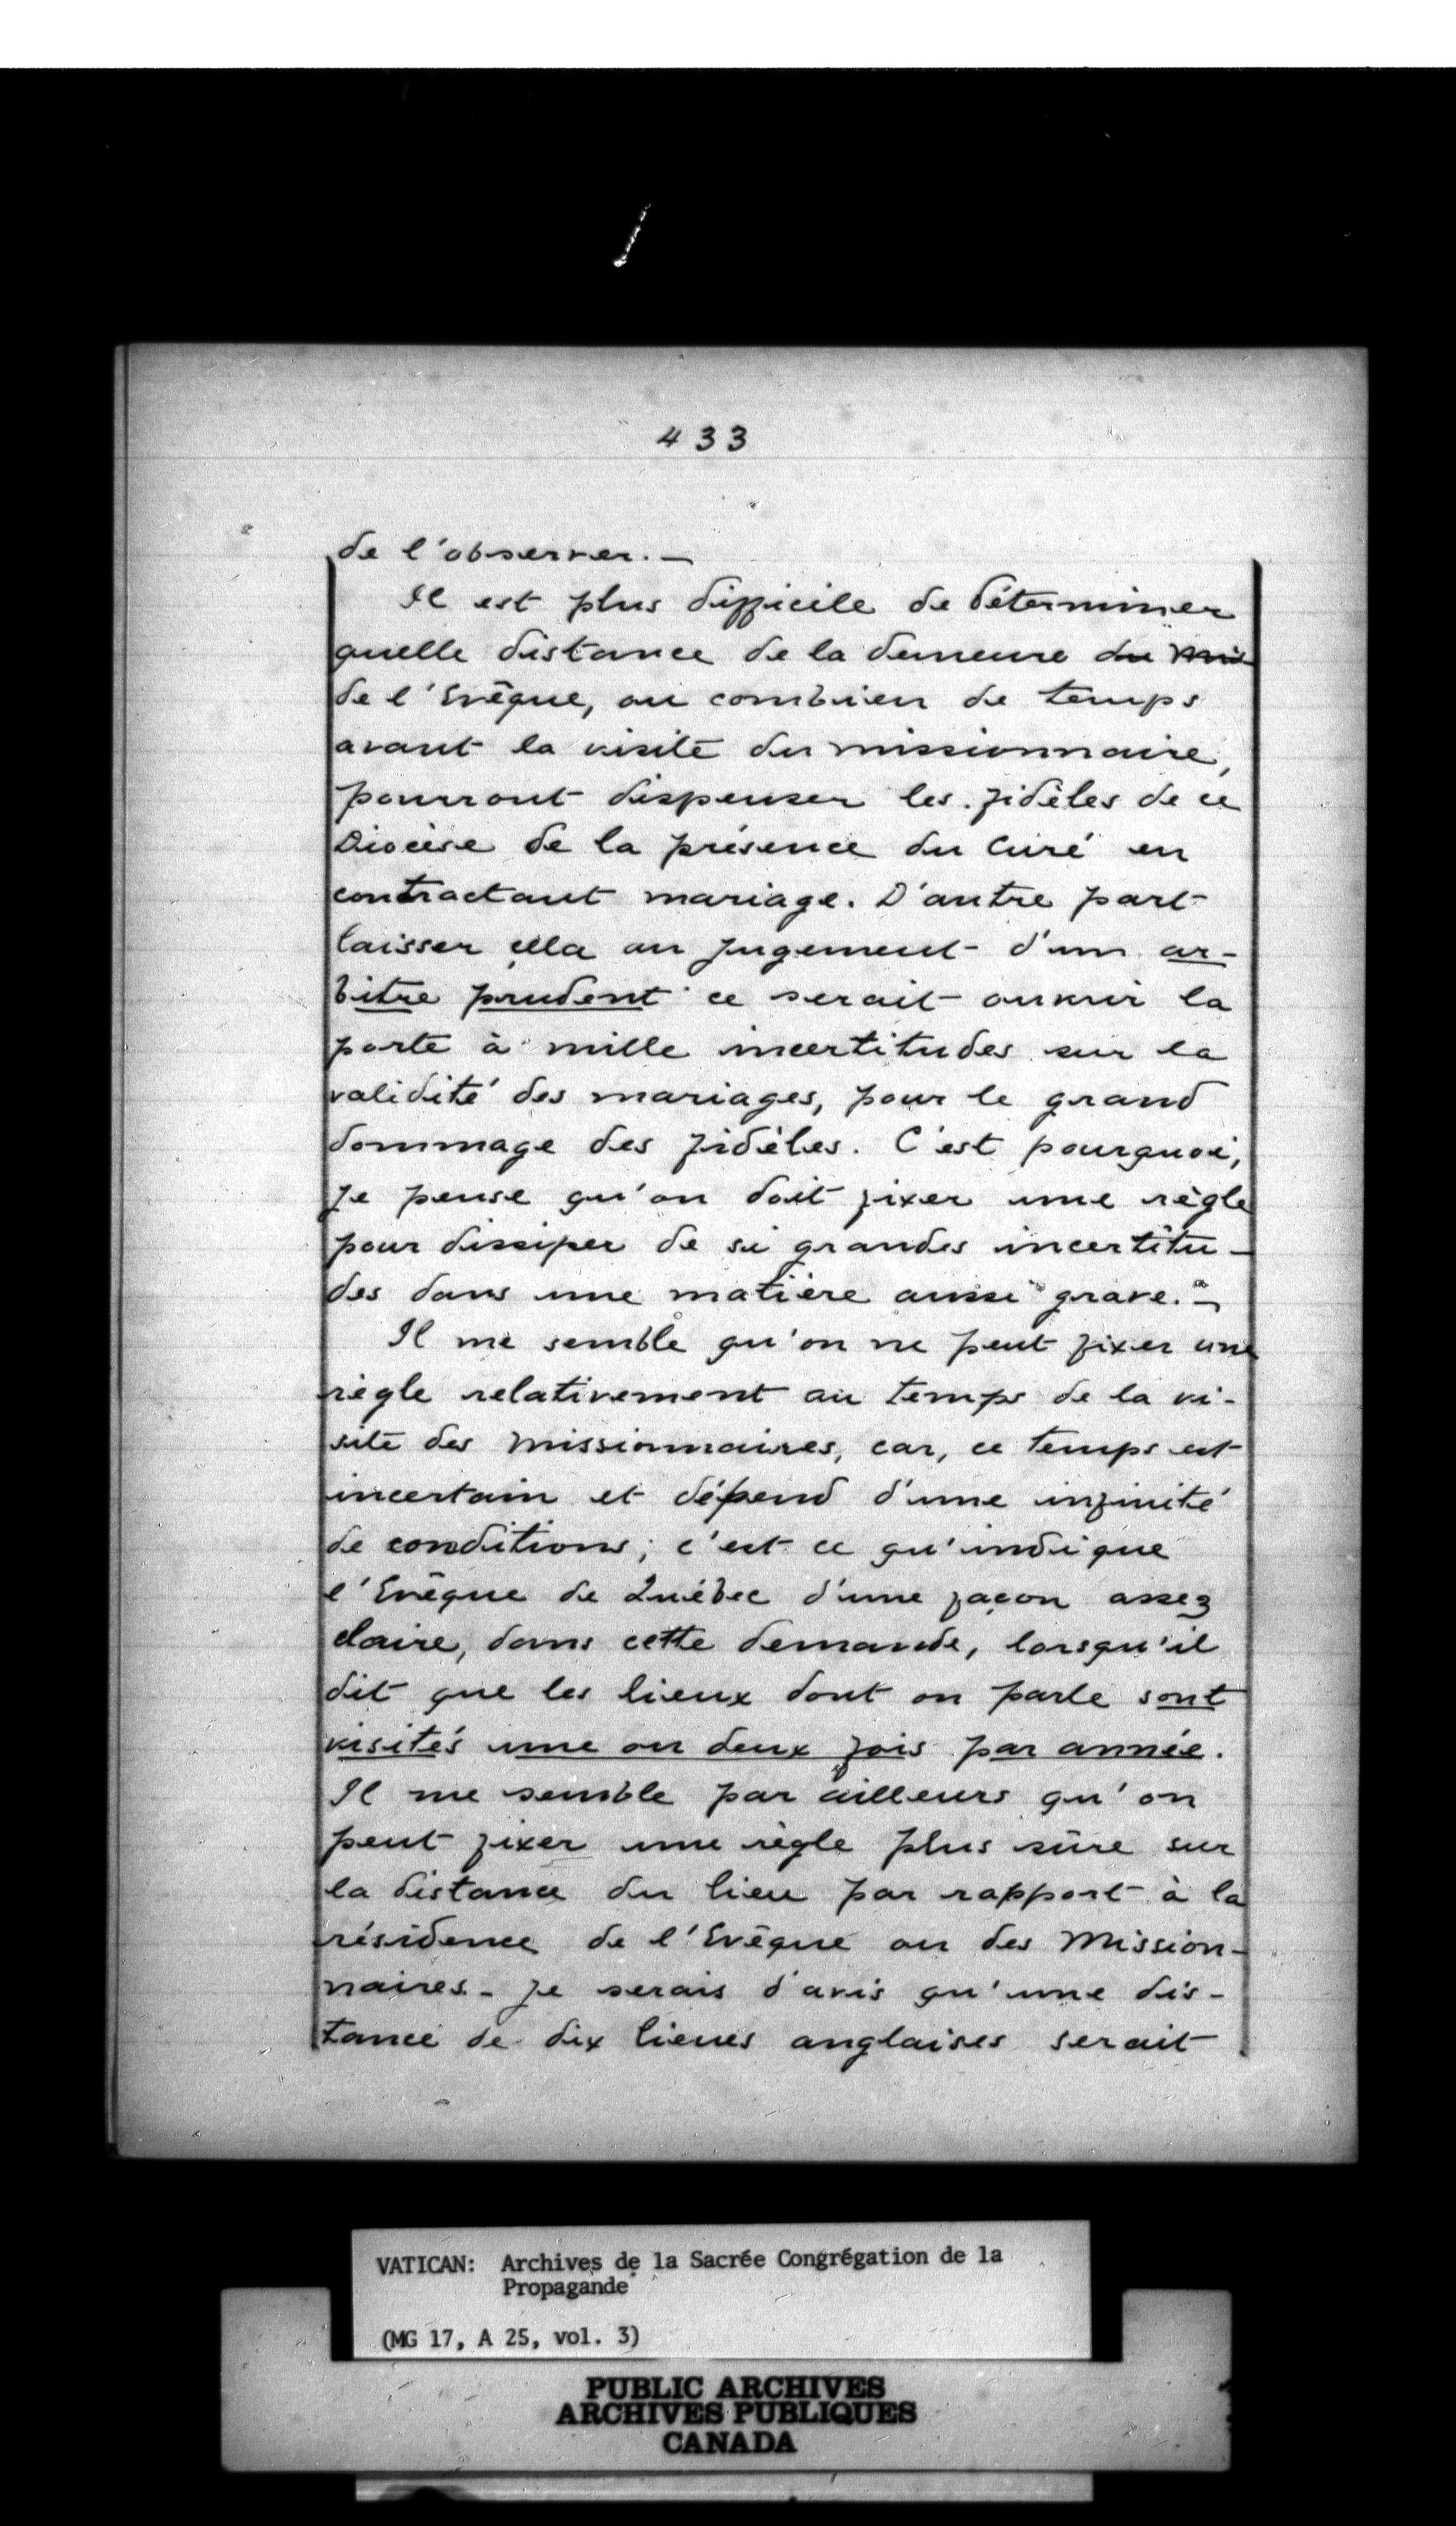 433
de l'observer. —
Il est plus difficile de déterminer
quelle distance de la demeure du Mis
de l'Evêque, ou combien de temps
avant la visite du missionnaire,
pourront dispenser les fidèles de ce
Diocèse de la présence du Curé en
contractant mariage. D'autre part
laisser cela au jugement d'un ar-
bitre prudent ce serait ouvrir la
porte à mille incertitudes sur la
validité des mariages, pour le grand
dommage des fidèles. C'est pourquoi,
je pense qu'on doit fixer une règle
pour dissiper de si grandes incertitu-
des dans une matière aussi grave. —
Il me semble qu'on ne peut fixer une
règle relativement au temps de la vi-
site des Missionnaires, car, ce temps est
incertain et dépend d'une infinité
de conditions; c'est ce qu'indique
l'Evêque de Québec d'une façon assez
claire, dans cette demande, lorsqu'il
dit que les lieux dont on parle sont
visités une ou deux fois par année.
Il me semble par ailleurs qu'on
peut fixer une règle plus sûre sur
la distance du lieu par rapport à la
résidence de l'Evêque ou des Mission-
naires - Je serais d'avis qu'une dis-
tance de dix lieues anglaises serait
VATICAN: Archives de la Sacrée Congrégation de la
Propagande
(MG 17, A 25, vol. 3)
PUBLIC ARCHIVES
ARCHIVES PUBLIQUES
CANADA